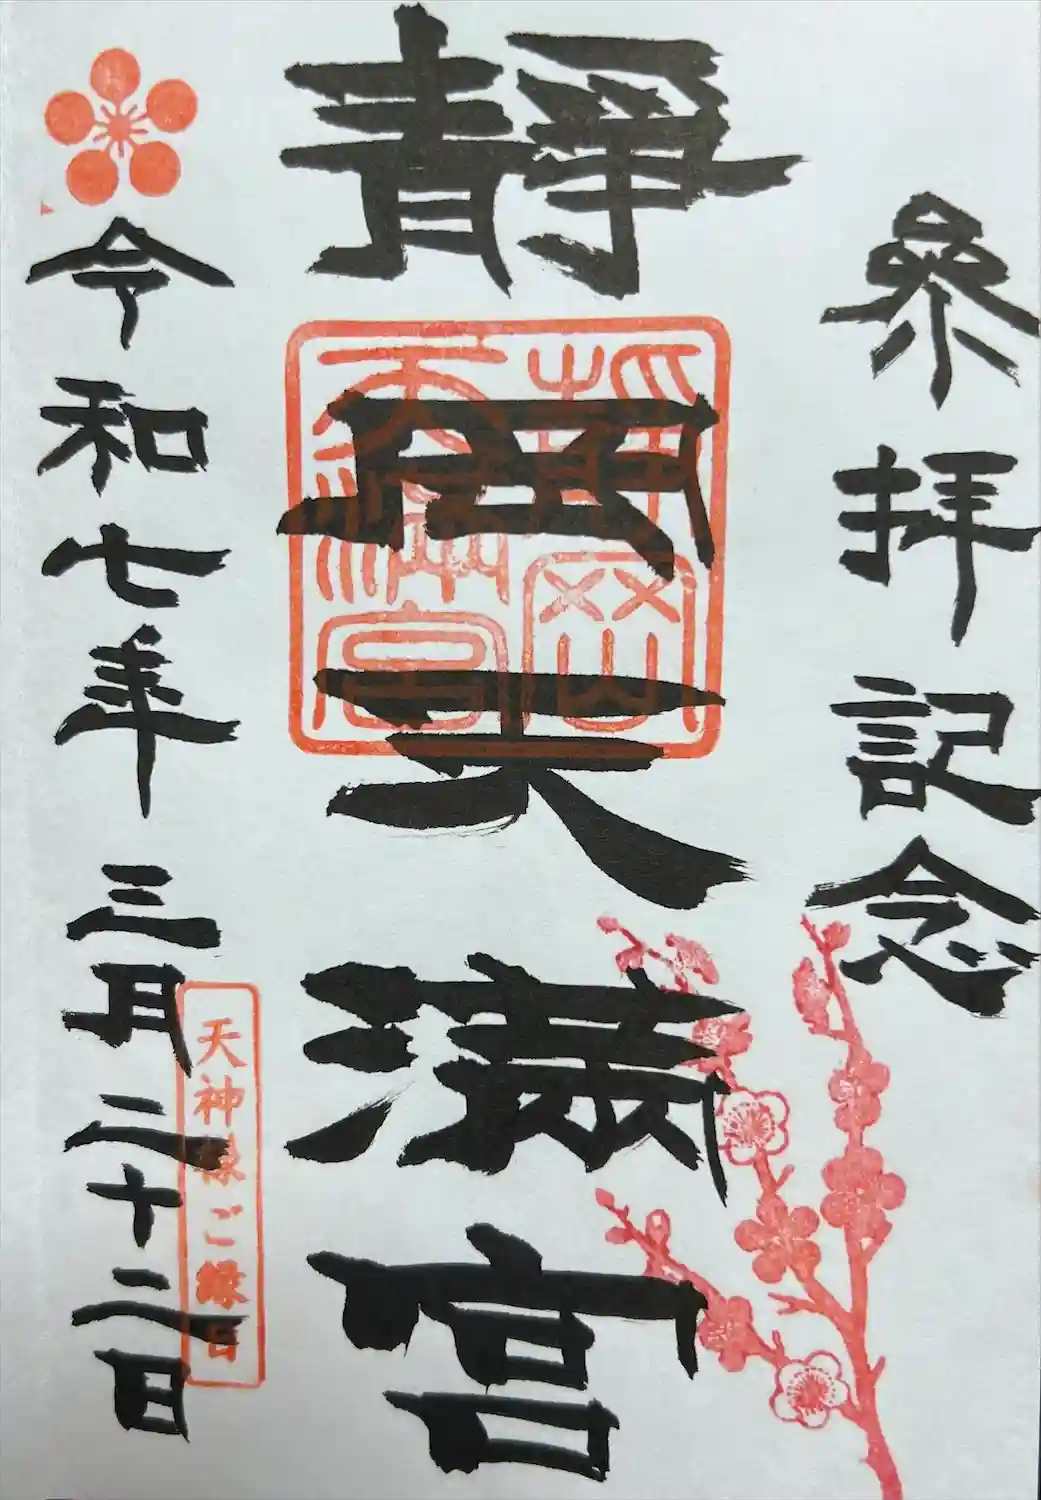 參拝記念
靜岡天満宮
靜岡
天満宮
天神様ご縁日
令和七年三月二十二日